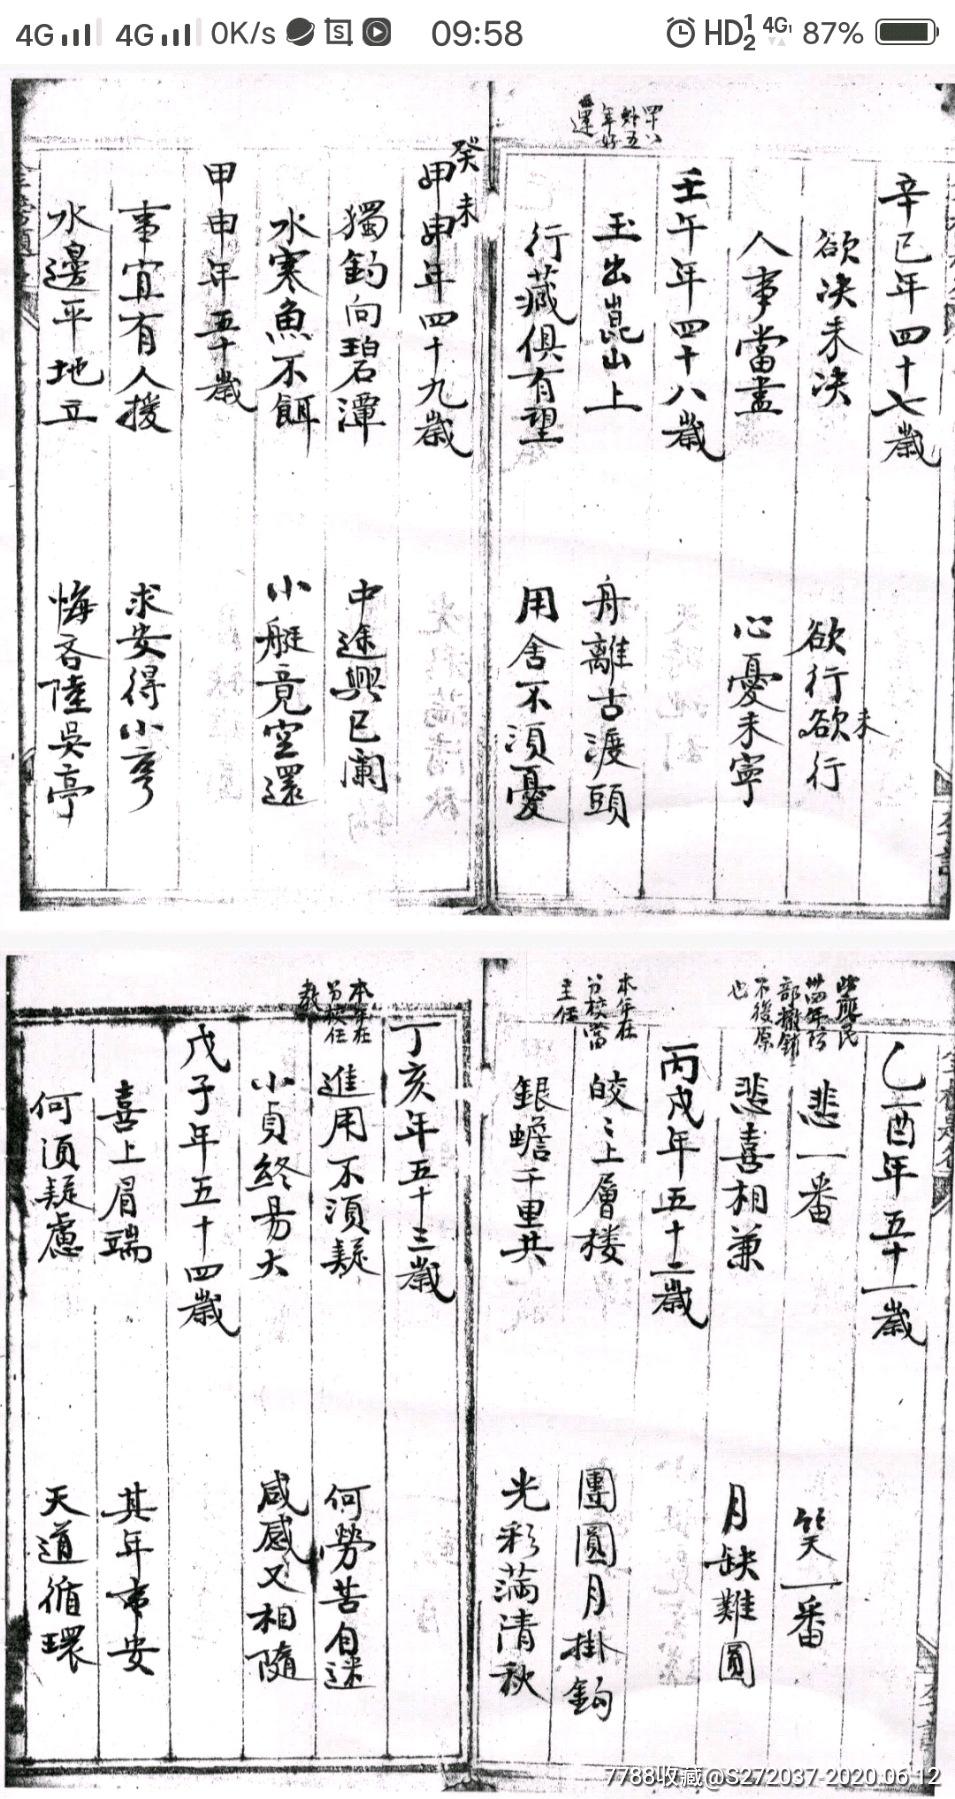 4G 4G 0K/s 09:58 HD 1 2 4G 87%
辛巳年四十七歲
欲决未决
欲行欲行
未
人事當盡
心憂未寧
壬午年四十八歲
玉出崑山上
舟離古渡頭
行藏俱有望
用舍不須憂
甲申年四十九歲
癸未
獨釣向碧潭
中途興已闌
水寒魚不餌
小艇竟空還
甲申年五十歲
事宜有人援
求安得小亨
水邊平地立
悔吝陸吳亭
乙酉年五十一歲
悲一番
笑一番
悲喜相兼
月缺難圓
丙戌年五十二歲
本年在
分校當
主任
皎〻上層楼
團圓月掛鈎
銀蟾千里共
光彩滿清秋
丁亥年五十三歲
本年在
分校任
教
進用不須疑
何勞苦自迷
小貞終易大
咸感又相隨
戊子年五十四歲
喜上眉端
其年事安
何須疑慮
天道循環
7788收藏@S272037-2020.06.12